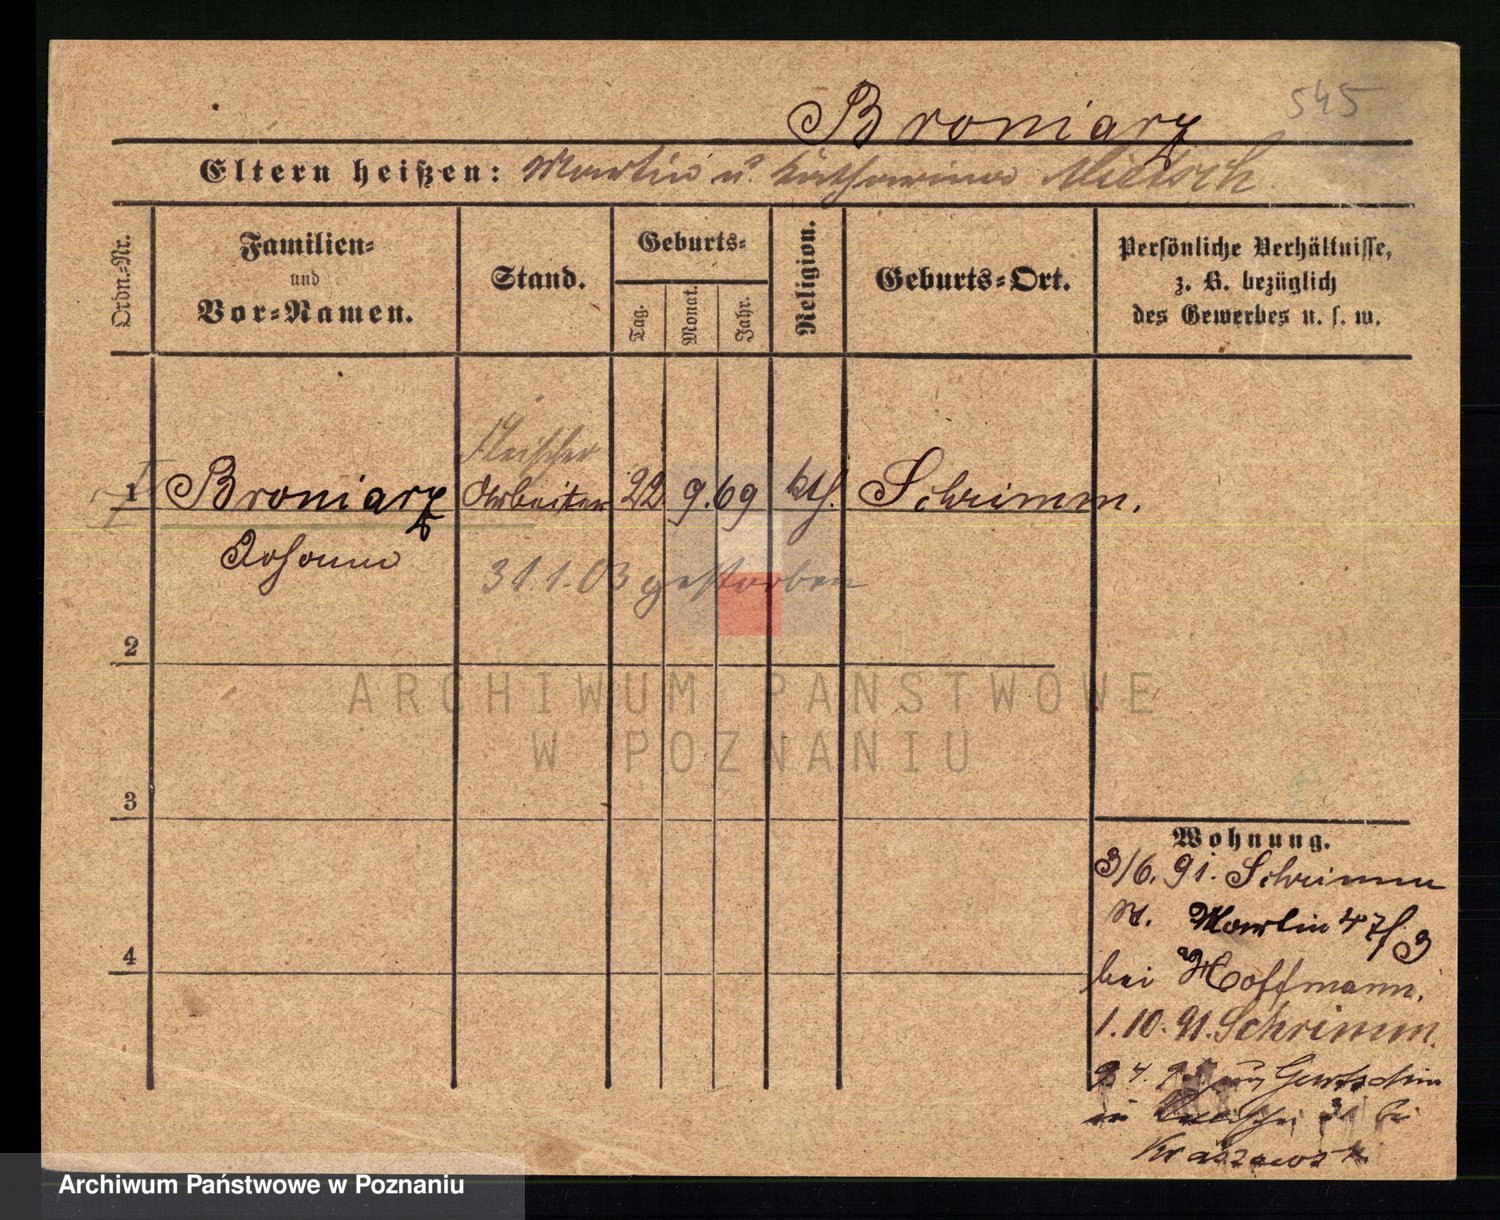 545
Broniarz
Eltern heißen: Martin u. Katharina Mietsch
Ordn.-Nr.
Familien-
und
Vor-Namen.
Stand.
Geburts-
Tag.
Monat.
Jahr.
Religion.
Geburts-Ort.
Persönliche Verhältnisse,
z. B. bezüglich
des Gewerbes u. s. w.
Fleischer
1 Broniarz Arbeiter 22 9. 69 kth. Schrimm.
Johann
31.1.03 gestorben
2
3
4
ARCHIWUM PAŃSTWOWE
W POZNANIU
Wohnung.
3/6. 91. Schrimm
St. Martin 47/3
bei Hoffmann.
1.10.91. Schrimm.
9.4.
31 bei
Archiwum Państwowe w Poznaniu